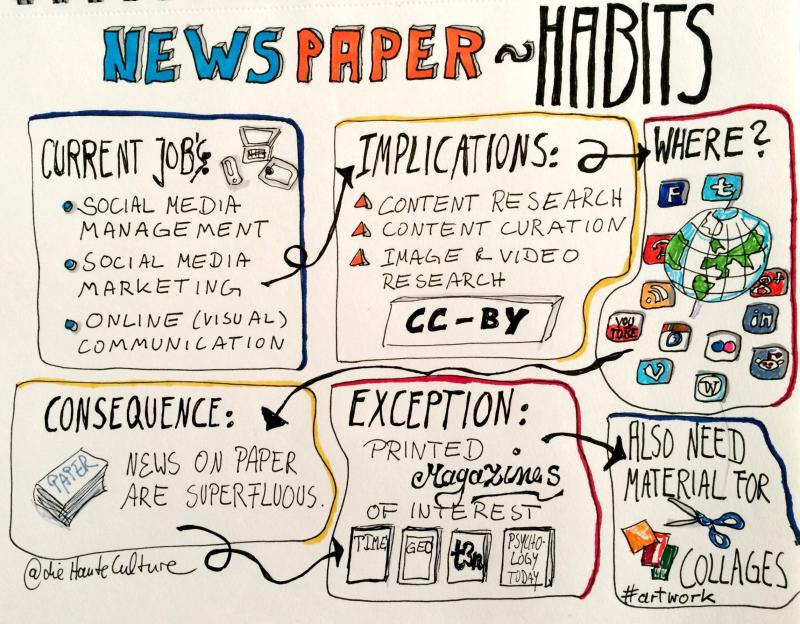 NEWSPAPER ~ HABITS
CURRENT JOB's:
SOCIAL MEDIA
MANAGEMENT
SOCIAL MEDIA
MARKETING
ONLINE (VISUAL)
COMMUNICATION
IMPLICATIONS:
CONTENT RESEARCH
CONTENT CURATION
IMAGE & VIDEO
RESEARCH
CC-BY
WHERE?
F
t
g+
YOU
TUBE
in
V
W
CONSEQUENCE:
PAPER
NEWS ON PAPER
ARE SUPERFLUOUS.
@dieHauteCulture
EXCEPTION:
PRINTED
MagaZines
OF INTEREST
TIME
GEO
t3n
PSYCHO-
LOGY
TODAY
ALSO NEED
MATERIAL FOR
COLLAGES
#artwork